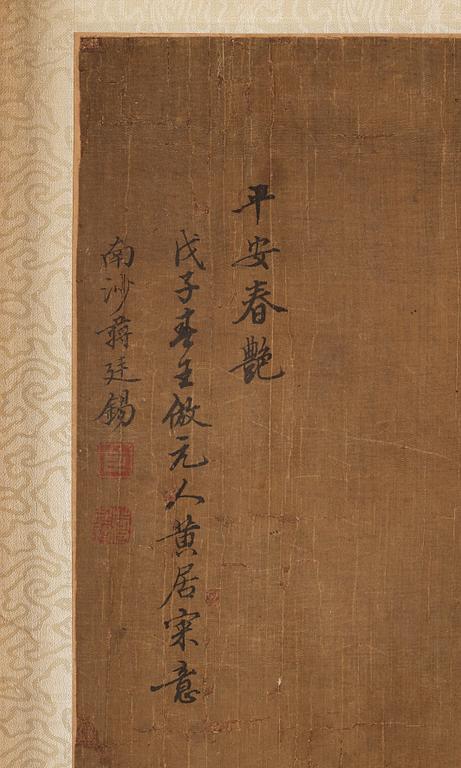 平安春艷
戊子春王倣元人黄居寀意
南沙蔣廷錫